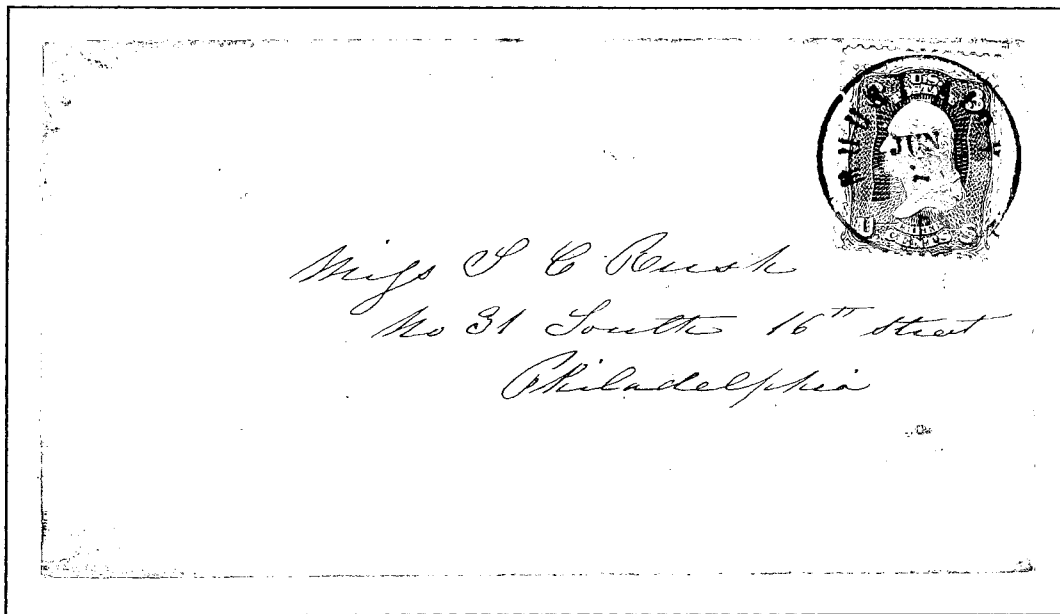 U.S.
3
JUN
U CENTS S
Miss S C Rush
No 31 South 16th Street
Philadelphia